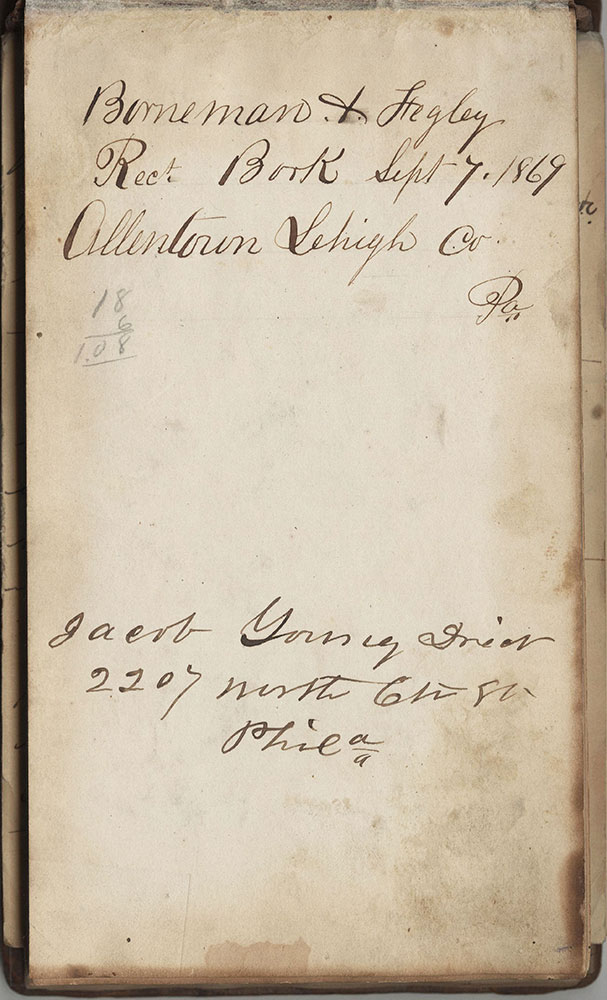 Borneman & Fegley
Rect. Book Sept 7. 1869
Allentown Lehigh Co.
Pa
18
6
1.08
Jacob Young
2207 North 6th St
Phila